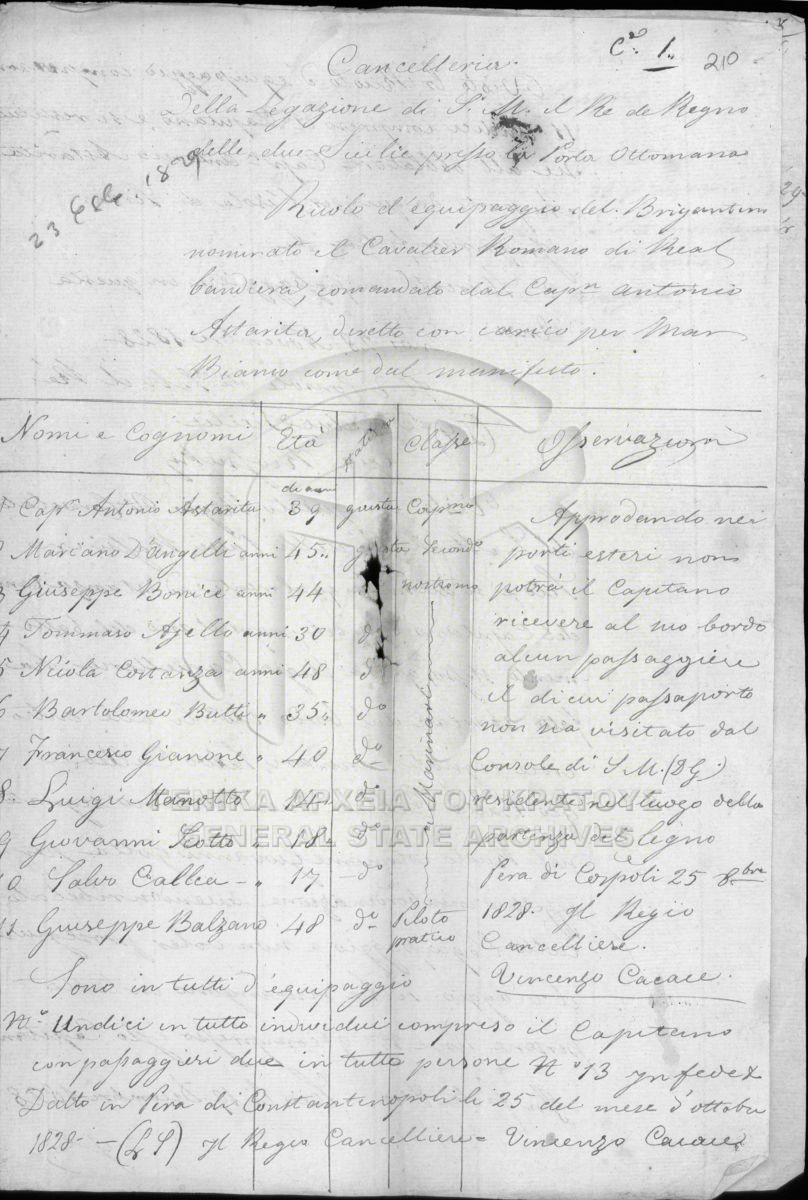 C.º 1.º 210
Cancelleria
della Legazione di S. M. il Re de Regno
delle due Sicilie presso la Porta Ottomana
23 1829
Ruolo d'equipaggio del Brigantino
nominato il Cavalier Romano di Real
bandiera, comandato dal Cap.n Antonio
Astarita, diretto con carico per Mar
Bianco come dal manifesto.
Nomi e Cognomi Età Classe Osservazioni
di anni
1 Cap.n Antonio Astarita 39 Cap.no
2 Marciano D'angelli anni 45 " Secondo
3 Giuseppe Bonice anni 44 nostromo
4 Tommaso Ajello anni 30 d.o
5 Nicola Costanza anni 48 d.o
6 Bartolomeo Butti " 35 " d.o
7 Francesco Gianone " 40 d.o
8 Luigi Manotto 14 d.o
9 Giovanni Scotto " 18 d.o
10 Salvo Callea - " 17 - d.o
11 Giuseppe Balzano 48 d.o Piloto
pratico
Marinari
Approdando nei
porti esteri non
potrà il Capitano
ricevere al suo bordo
alcun passaggiere
il di cui passaporto
non sia visitato dal
Console di S. M. (D G.)
residente nel luogo della
partenza del Legno
Pera di Cospoli 25 8.bre
1828. Il Regio
Cancelliere.
Vincenzo Cacace.
Sono in tutti d'equipaggio
N.º Undici in tutto individui compreso il Capitano
con passaggieri due in tutto persone N.º 13 In fede &
Datto in Pera di Constantinopoli li 25 del mese d'ottobre
1828 - (L S) Il Regio Cancelliere = Vincenzo Cacace
ΓΕΝΙΚΑ ΑΡΧΕΙΑ ΤΟΥ ΚΡΑΤΟΥΣ
GENERAL STATE ARCHIVES